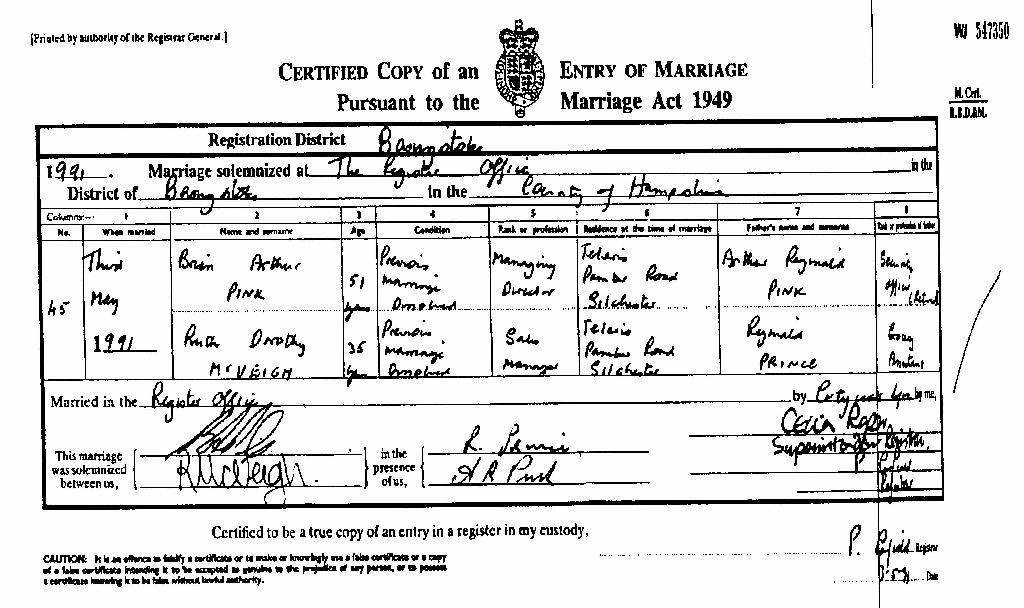 [Printed by authority of the Registrar General.]
WJ 547350
CERTIFIED COPY of an ENTRY OF MARRIAGE
Pursuant to the Marriage Act 1949
M. Cert.
Registration District Basingstoke
1991. Marriage solemnized at The Register Office in the
District of Basingstoke in the County of Hampshire
Columns:— 1 2 3 4 5 6 7 8
No. When married Name and surname Age Condition Rank or profession Residence at the time of marriage Father's name and surname Rank or profession of father
45 Third May 1991
Brian Arthur PINK 51 years Previous marriage Dissolved Managing Director Pamber Road Silchester Arthur Reginald PINK Officer (Retired)
Ruth Dorothy McVEIGH 35 years Previous marriage Dissolved Sales Manager Pamber Road Silchester Reginald PRINCE
Married in the Register Office by Certificate before by me,
This marriage was solemnized between us,
R McVeigh
in the presence of us,
Superintendent Registrar
Registrar
Certified to be a true copy of an entry in a register in my custody,
P. Registrar
Date
CAUTION: It is an offence to falsify a certificate or to make or knowingly use a false certificate or a copy
of a false certificate intending it to be accepted as genuine to the prejudice of any person, or to possess
a certificate knowing it to be false without lawful authority.